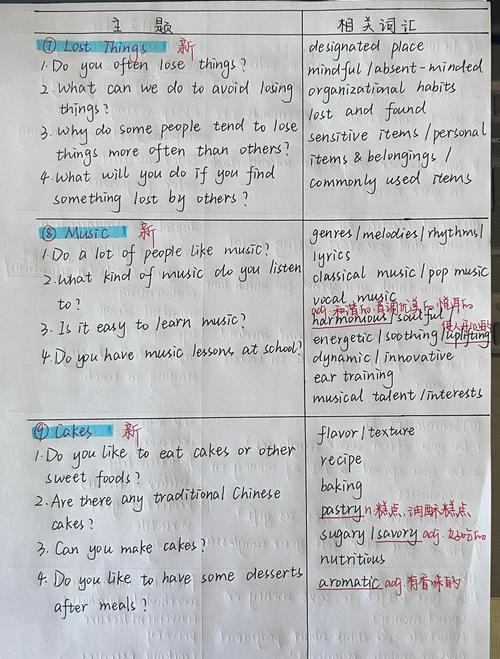 主题
相关词汇
⑦ Lost Things 新
1. Do you often lose things?
2. What can we do to avoid losing
things?
3. Why do some people tend to lose
things more often than others?
4. What will you do if you find
something lost by others?
designated place
mindful / absent-minded
organizational habits
lost and found
sensitive items / personal
items & belongings /
commonly used items
⑧ Music 新
1. Do a lot of people like music?
2. What kind of music do you listen
to?
3. Is it easy to learn music?
4. Do you have music lessons at school?
genres / melodies / rhythms /
lyrics
classical music / pop music
vocal music
adj. 和谐的,音调优美的,悦耳的
harmonious / soulful /
使人开心的
energetic / soothing / uplifting
dynamic / innovative
ear training
musical talent / interests
⑨ Cakes 新
1. Do you like to eat cakes or other
sweet foods?
2. Are there any traditional Chinese
cakes?
3. Can you make cakes?
4. Do you like to have some desserts
after meals?
flavor / texture
recipe
baking
pastry n. 糕点,油酥糕点
sugary / savory adj. 好吃的
nutritious
aromatic adj. 有香味的